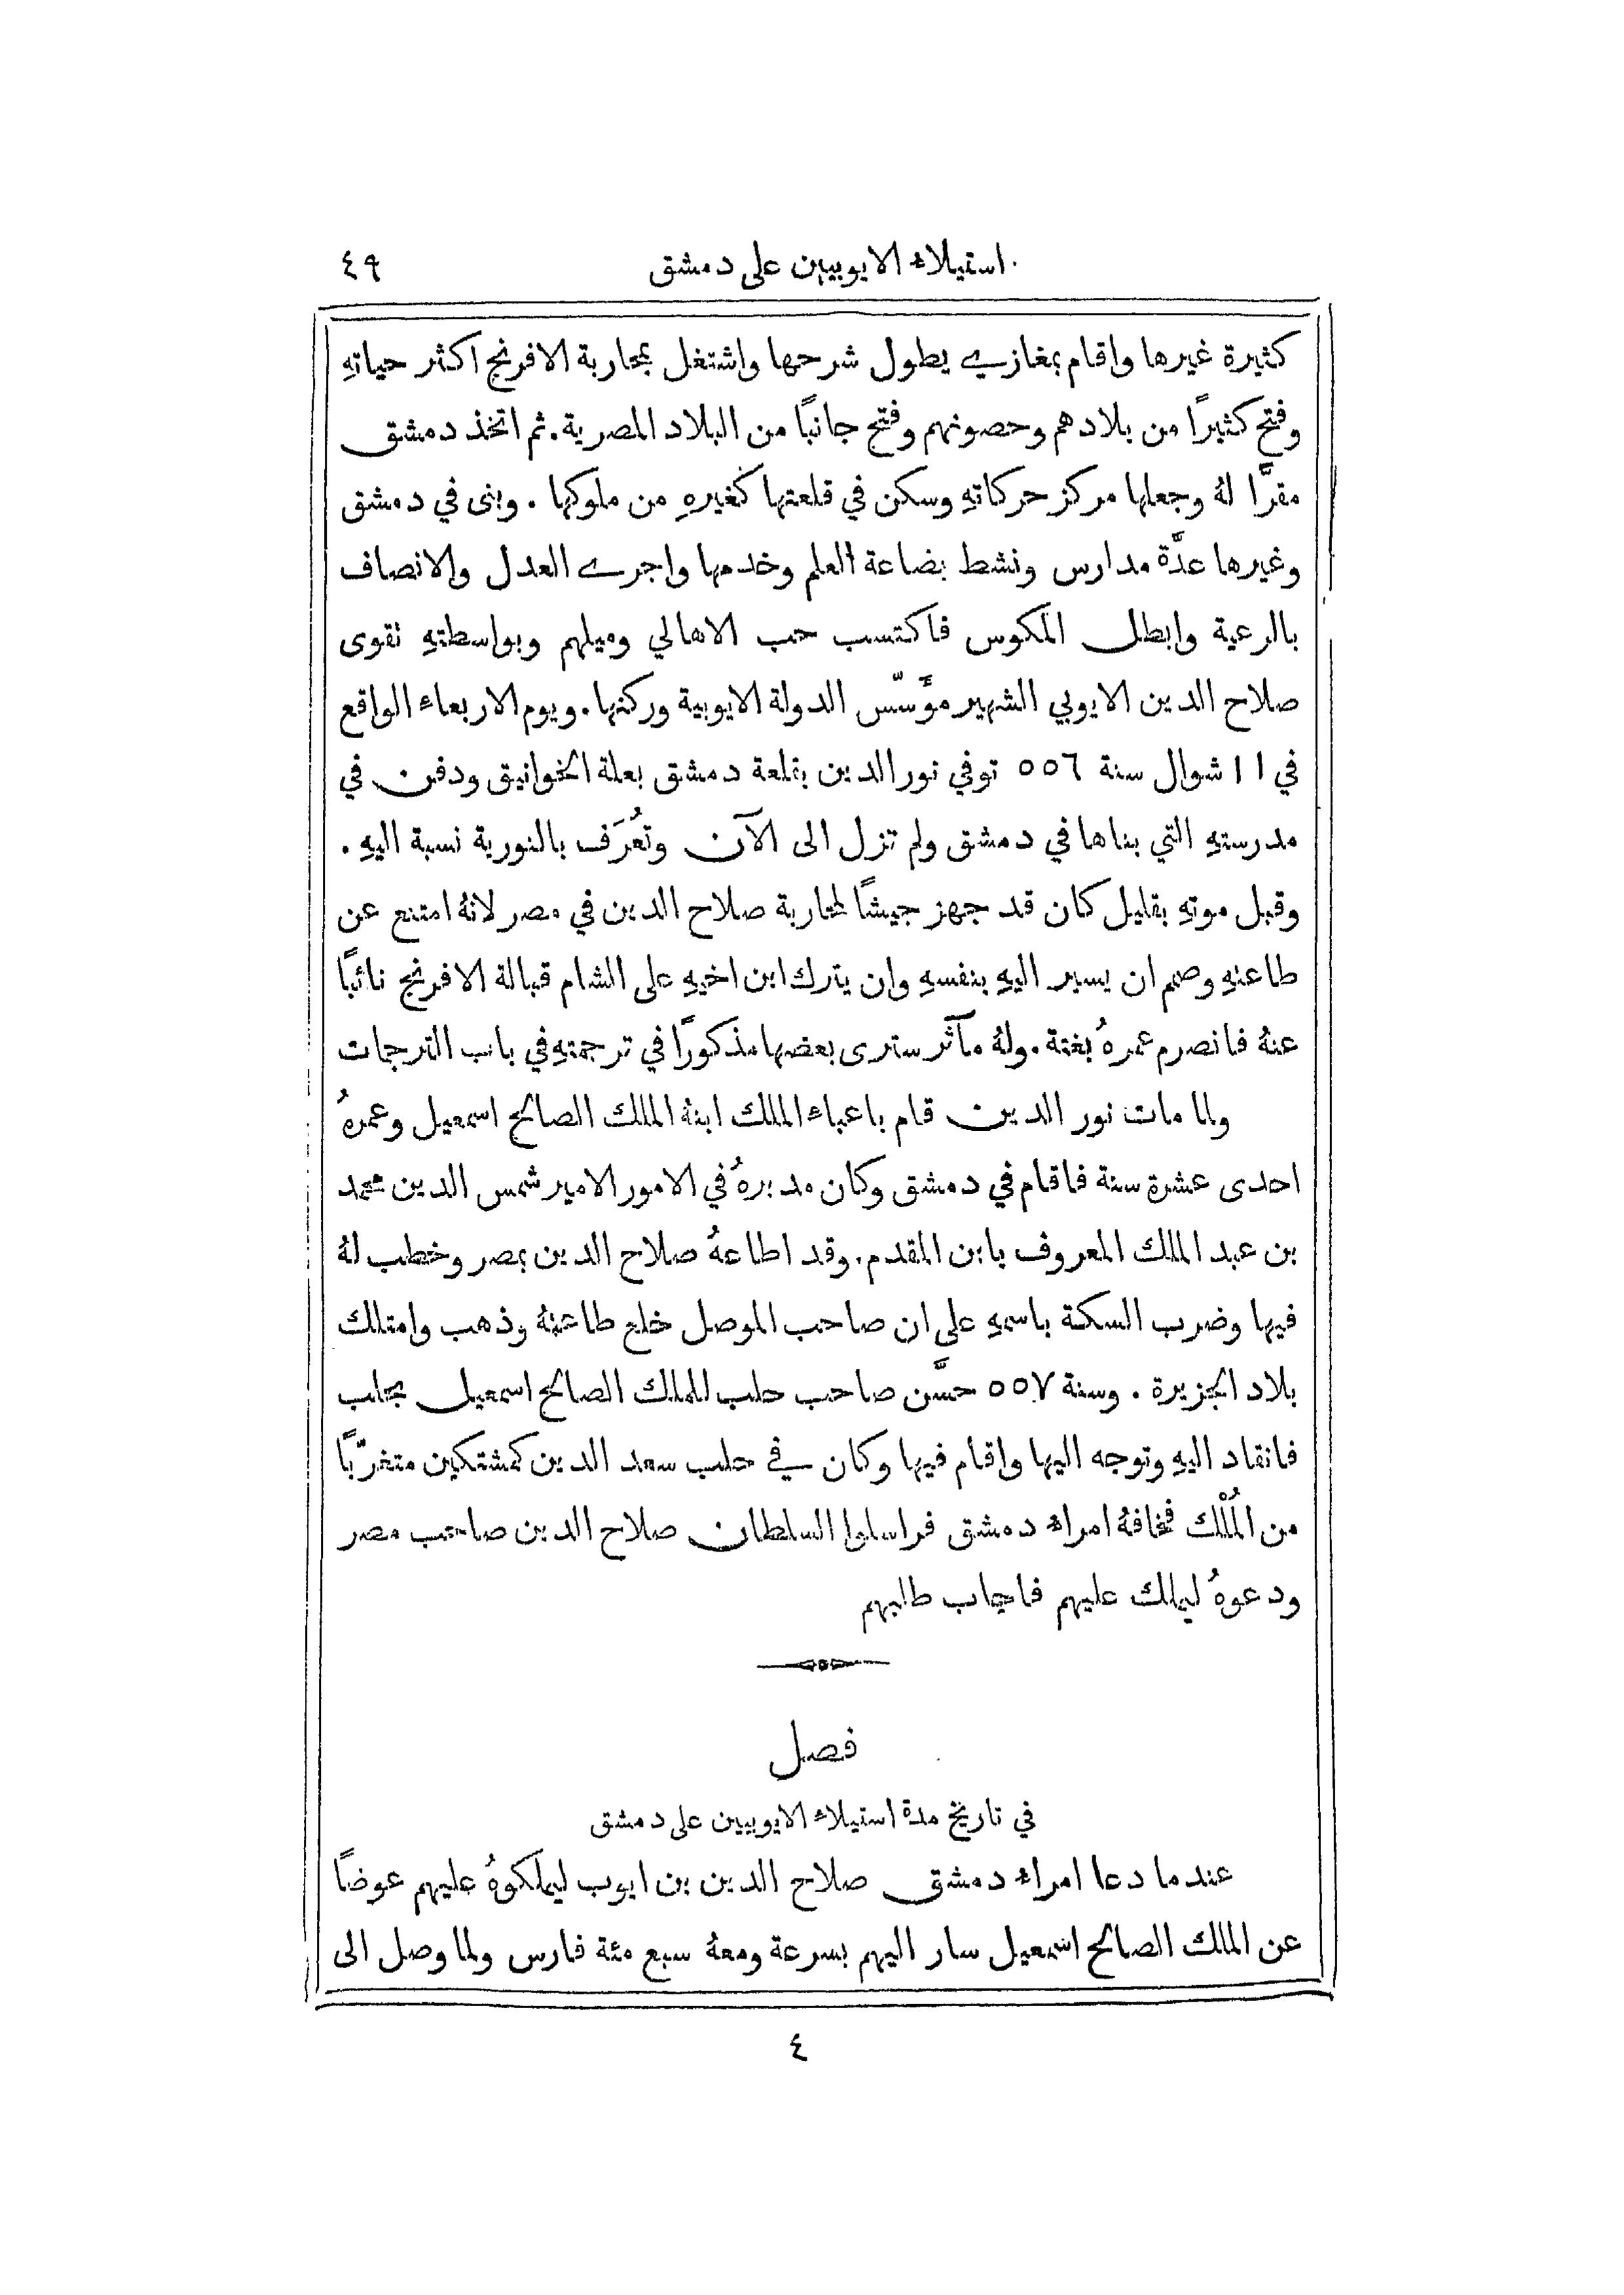 استيلاء الايوبيين على دمشق ٤٩
كثيرة غيرها واقام بمغازي يطول شرحها واشتغل بمحاربة الافرنج اكثر حياتهِ
وفتح كثيرًا من بلادهم وحصونهم وفتح جانبًا من البلاد المصرية. ثم اتخذ دمشق
مقرًّا لهُ وجعلها مركز حركاتهِ وسكن في قلعتها كغيرهِ من ملوكها . وبنى في دمشق
وغيرها عدَّة مدارس ونشط بضاعة العلم وخدمها واجرى العدل والانصاف
بالرعية وابطل المكوس فاكتسب حب الاهالي وميلهم وبواسطتهِ تقوى
صلاح الدين الايوبي الشهير مؤَسّس الدولة الايوبية وركنها. ويوم الاربعاء الواقع
في ١١ شوال سنة ٥٥٦ توفي نور الدين بقلعة دمشق بعلة الخوانيق ودفن في
مدرستهِ التي بناها في دمشق ولم تزل الى الآن وتُعرَف بالنورية نسبة اليهِ .
وقبل موتهِ بقليل كان قد جهز جيشًا لمحاربة صلاح الدين في مصر لانهُ امتنع عن
طاعتهِ وصمم ان يسير اليهِ بنفسهِ وان يترك ابن اخيهِ على الشام قبالة الافرنج نائبًا
عنهُ فانصرم عمرهُ بغتة. ولهُ مآثر سترى بعضها مذكورًا في ترجمتهِ في باب الترجمات
ولما مات نور الدين قام باعباء الملك ابنهُ الملك الصالح اسمعيل وعمرهُ
احدى عشرة سنة فاقام في دمشق وكان مدبرهُ في الامور الامير شمس الدين محمد
بن عبد الملك المعروف بابن المقدم. وقد اطاعهُ صلاح الدين بمصر وخطب لهُ
فيها وضرب السكة باسمهِ على ان صاحب الموصل خلع طاعتهُ وذهب وامتلك
بلاد الجزيرة . وسنة ٥٥٧ حسَّن صاحب حلب للملك الصالح اسمعيل بحلب
فانقاد اليهِ وتوجه اليها واقام فيها وكان في حلب سعد الدين كمشتكين متغرّبًا
من المُلْك فخافهُ امراء دمشق فراسلوا السلطان صلاح الدين صاحب مصر
ودعوهُ ليملك عليهم فاجاب طلبهم
فصل
في تاريخ مدة استيلاء الايوبيين على دمشق
عندما دعا امراء دمشق صلاح الدين بن ايوب ليملكوهُ عليهم عوضًا
عن الملك الصالح اسمعيل سار اليهم بسرعة ومعهُ سبع مئة فارس ولما وصل الى
٤